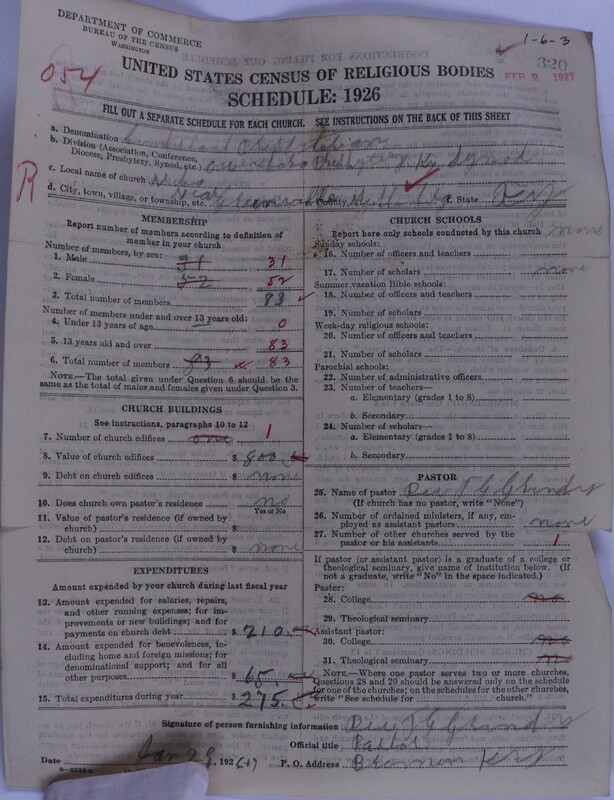 DEPARTMENT OF COMMERCE
BUREAU OF THE CENSUS
WASHINGTON
1-6-3
320
FEB 2 1927
054
UNITED STATES CENSUS OF RELIGIOUS BODIES
SCHEDULE: 1926
FILL OUT A SEPARATE SCHEDULE FOR EACH CHURCH. SEE INSTRUCTIONS ON THE BACK OF THIS SHEET
R
a. Denomination Cumberland Presbyterian
b. Division (Association, Conference, Diocese, Presbytery, Synod, etc.) Owensboro Presbytery Ky Synod
c. Local name of church
d. City, town, village, or township, etc. County State Ky
MEMBERSHIP
Report number of members according to definition of member in your church
Number of members, by sex:
1. Male 31 31
2. Female 52 52
3. Total number of members 83
Number of members under and over 13 years old:
4. Under 13 years of age 0
5. 13 years old and over 83
6. Total number of members 83 83
NOTE.—The total given under Question 6 should be the same as the total of males and females given under Question 3.
CHURCH BUILDINGS
See instructions, paragraphs 10 to 12
7. Number of church edifices one 1
8. Value of church edifices $ 800
9. Debt on church edifices $ none
10. Does church own pastor's residence no
Yes or No
11. Value of pastor's residence (if owned by church) $
12. Debt on pastor's residence (if owned by church) $ none
EXPENDITURES
Amount expended by your church during last fiscal year
13. Amount expended for salaries, repairs, and other running expenses; for improvements or new buildings; and for payments on church debt $ 210.
14. Amount expended for benevolences, including home and foreign missions; for denominational support; and for all other purposes $ 65.
15. Total expenditures during year $ 275.
CHURCH SCHOOLS
Report here only schools conducted by this church none
Sunday schools:
16. Number of officers and teachers
17. Number of scholars none
Summer vacation Bible schools:
18. Number of officers and teachers
19. Number of scholars
Week-day religious schools:
20. Number of officers and teachers
21. Number of scholars
Parochial schools:
22. Number of administrative officers
23. Number of teachers—
a. Elementary (grades 1 to 8)
b. Secondary
24. Number of scholars—
a. Elementary (grades 1 to 8)
b. Secondary
PASTOR
25. Name of pastor Rev T G
(If church has no pastor, write "None")
26. Number of ordained ministers, if any, employed as assistant pastors none
27. Number of other churches served by the pastor or his assistants 1
If pastor (or assistant pastor) is a graduate of a college or theological seminary, give name of institution below. (If not a graduate, write "No" in the space indicated.)
Pastor:
28. College no
29. Theological seminary
Assistant pastor:
30. College no
31. Theological seminary no
NOTE.—Where one pastor serves two or more churches, Questions 28 and 29 should be answered only on the schedule for one of the churches; on the schedules for the other churches, write "See schedule for church."
Signature of person furnishing information Rev T G
Official title Pastor
Date Jan 29, 192 P. O. Address Ky